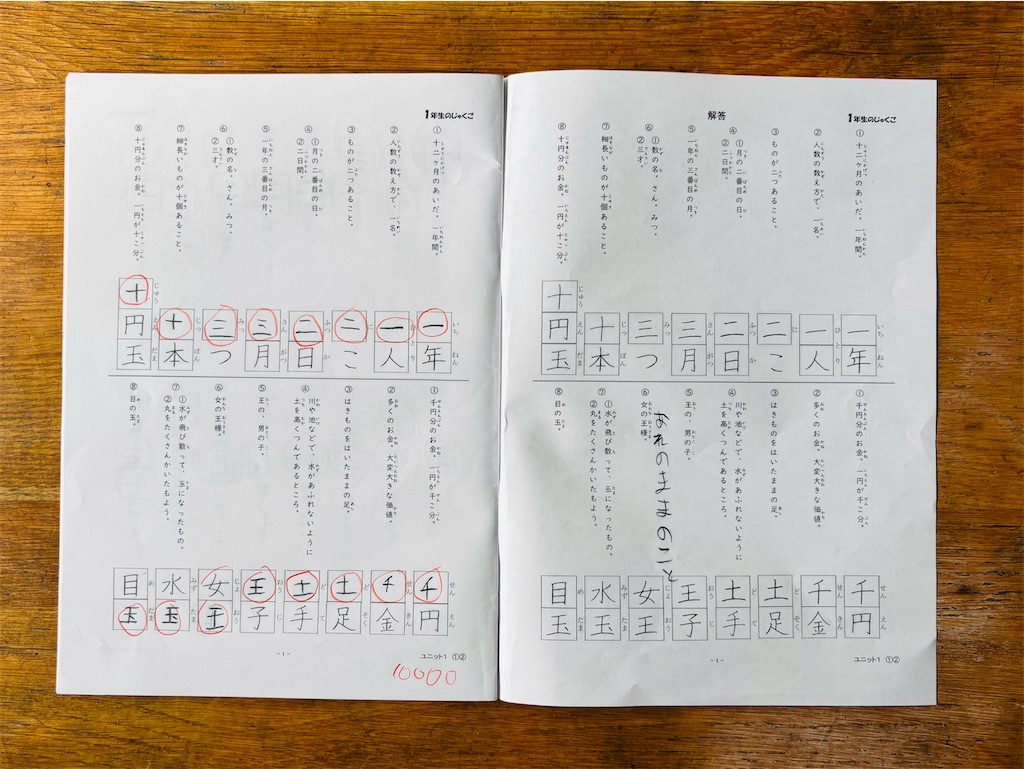 1年生のじゅくご
① 十二ヶ月のあいだ。一年間。
② 人数の数え方で、一名。
③ ものが二つあること。
④ ①月の二番目の日。
②二日間。
⑤ 一年の三番目の月。
⑥ ①数の名。さん。みつ。
②三才。
⑦ 細長いものが十個あること。
⑧ 十円分のお金。一円が十こ分。
一年 いち ねん
一人 ひと り
二こ に
二日 ふつ か
三月 さん がつ
三つ みっ
十本 じっ ぽん
十円玉 じゅう えん だま
① 千円分のお金。一円が千こ分。
② 多くのお金。大変大きな価値。
③ はきものをはいたままの足。
④ 川や池などで、水があふれないように
土を高くつんであるところ。
⑤ 王の、男の子。
⑥ 女の王様。
⑦ ①水が飛び散って、玉になったもの。
②丸をたくさんかいたもよう。
⑧ 目の玉。
千円 せん えん
千金 せん きん
土足 ど そく
土手 ど て
王子 おう じ
女王 じょ おう
水玉 みず たま
目玉 め だま
ユニット1 ①②
-1-
10000
1年生のじゅくご
解答
① 十二ヶ月のあいだ。一年間。
② 人数の数え方で、一名。
③ ものが二つあること。
④ ①月の二番目の日。
②二日間。
⑤ 一年の三番目の月。
⑥ ①数の名。さん。みつ。
②三才。
⑦ 細長いものが十個あること。
⑧ 十円分のお金。一円が十こ分。
一年 いち ねん
一人 ひと り
二こ に
二日 ふつ か
三月 さん がつ
三つ みっ
十本 じっ ぽん
十円玉 じゅう えん だま
① 千円分のお金。一円が千こ分。
② 多くのお金。大変大きな価値。
③ はきものをはいたままの足。
④ 川や池などで、水があふれないように
土を高くつんであるところ。
⑤ 王の、男の子。
のままのこと
⑥ 女の王様。
⑦ ①水が飛び散って、玉になったもの。
②丸をたくさんかいたもよう。
⑧ 目の玉。
千円 せん えん
千金 せん きん
土足 ど そく
土手 ど て
王子 おう じ
女王 じょ おう
水玉 みず たま
目玉 め だま
ユニット1 ①②
-1-